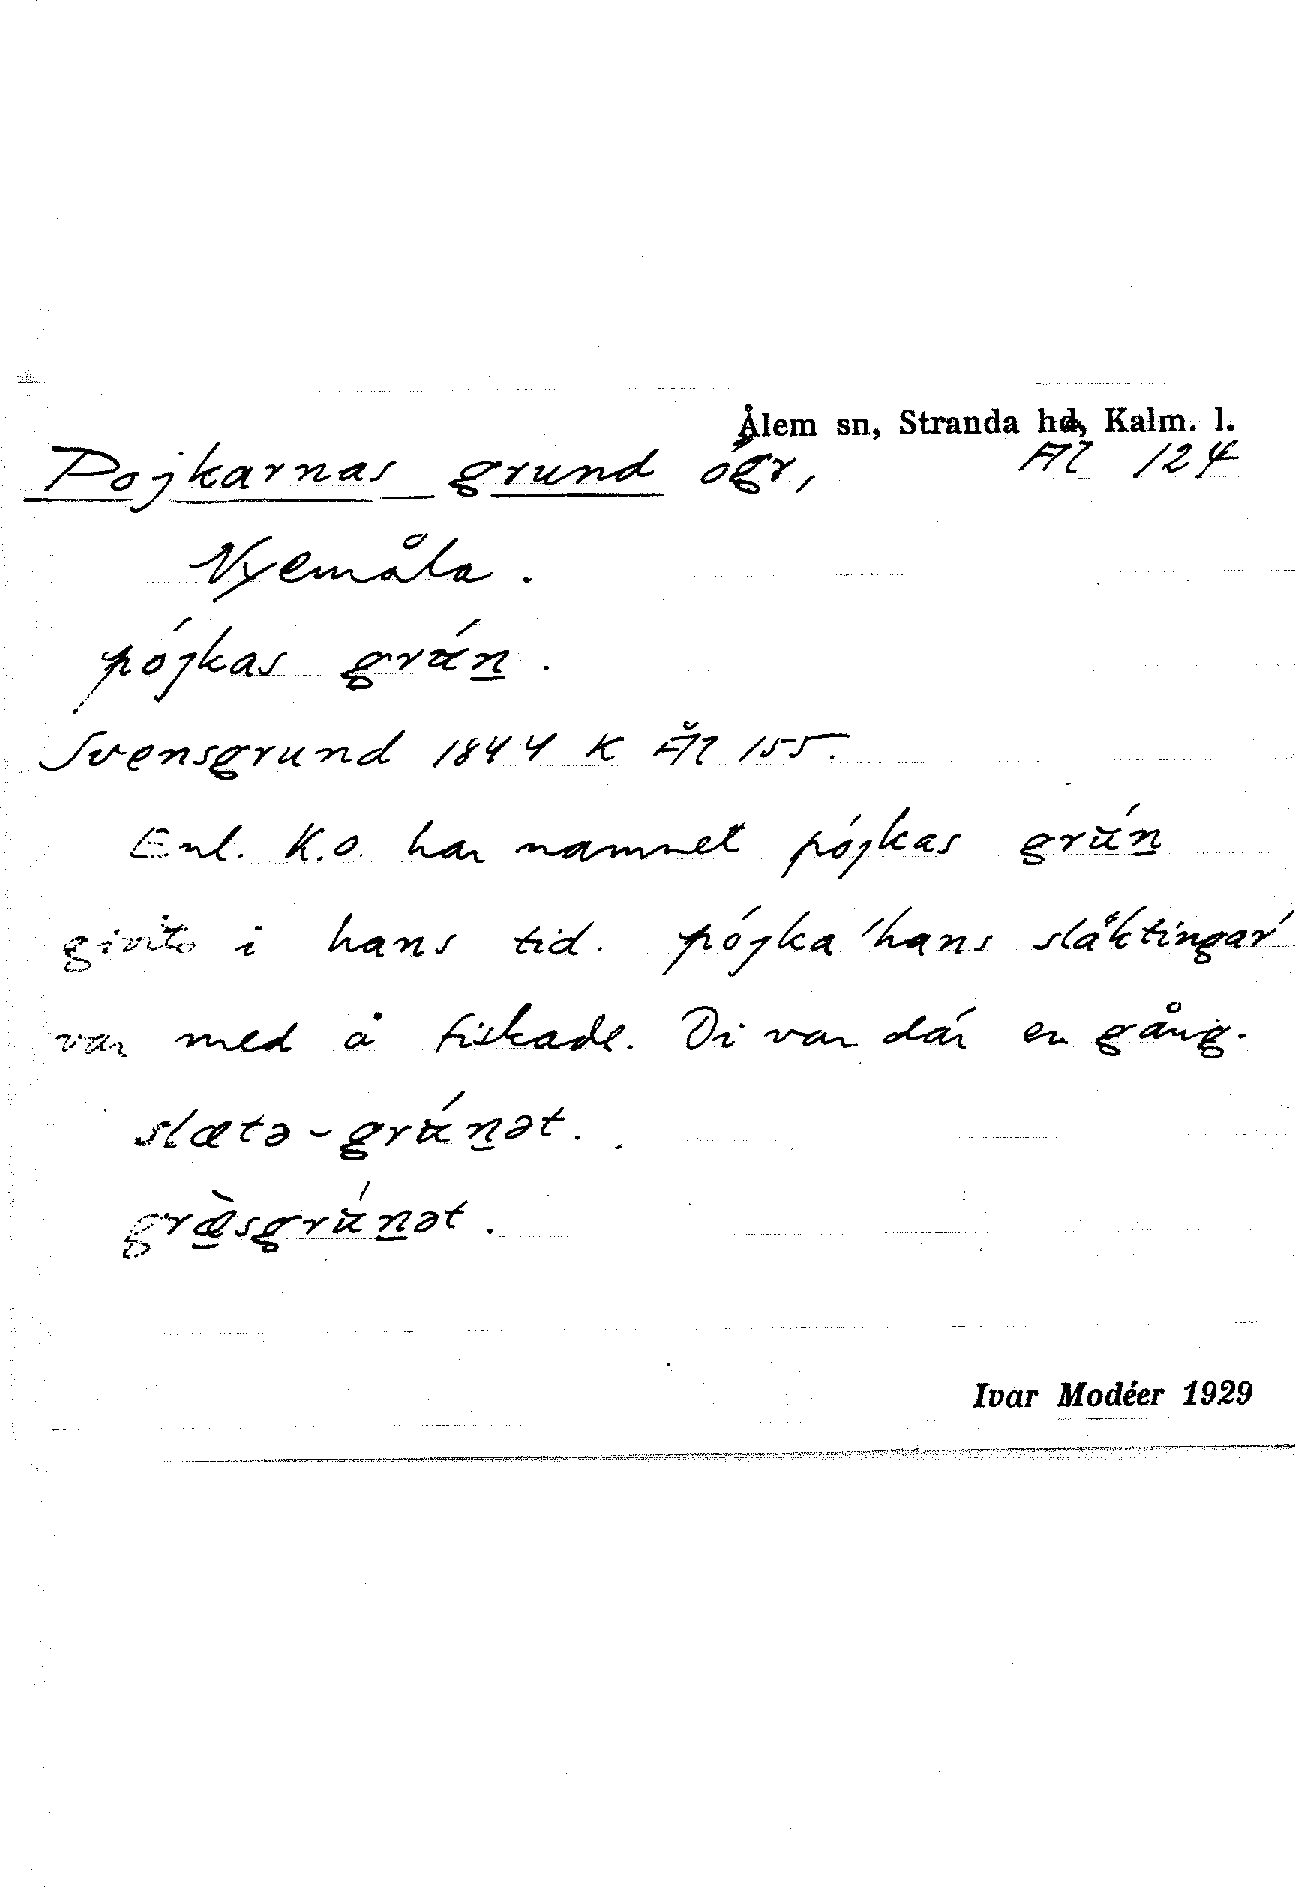 Ålem sn, Stranda hd, Kalm. l.
Pojkarnas grund ögr, 124
Nyemåla.
pójkas grún.
Svensgrund 1844 K 155.
Enl. K.O. har namnet pójkas grún
givits i hans tid. pójka 'hans släktingar'
var med å fiskade. Di var där en gång.
slætə-grúnət.
græ̀sgrúnət.
Ivar Modéer 1929